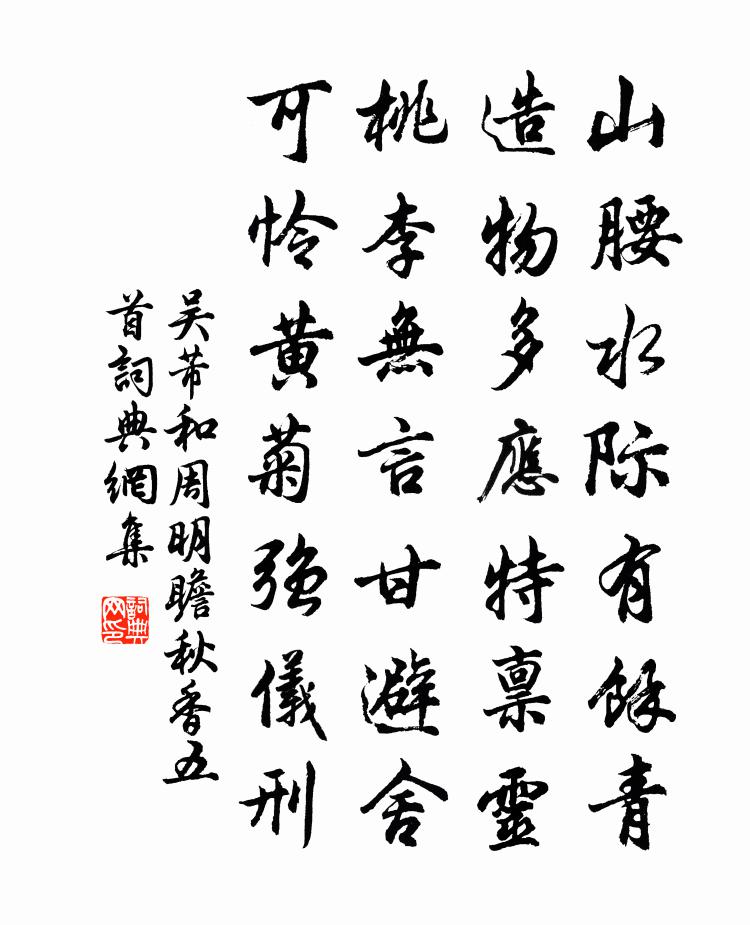 山腰水际有餘青
造物多應特禀靈
桃李無言甘避舍
可怜黄菊强儀刑
吴芾和周明瞻秋香五
首詞典網集
詞典
网印